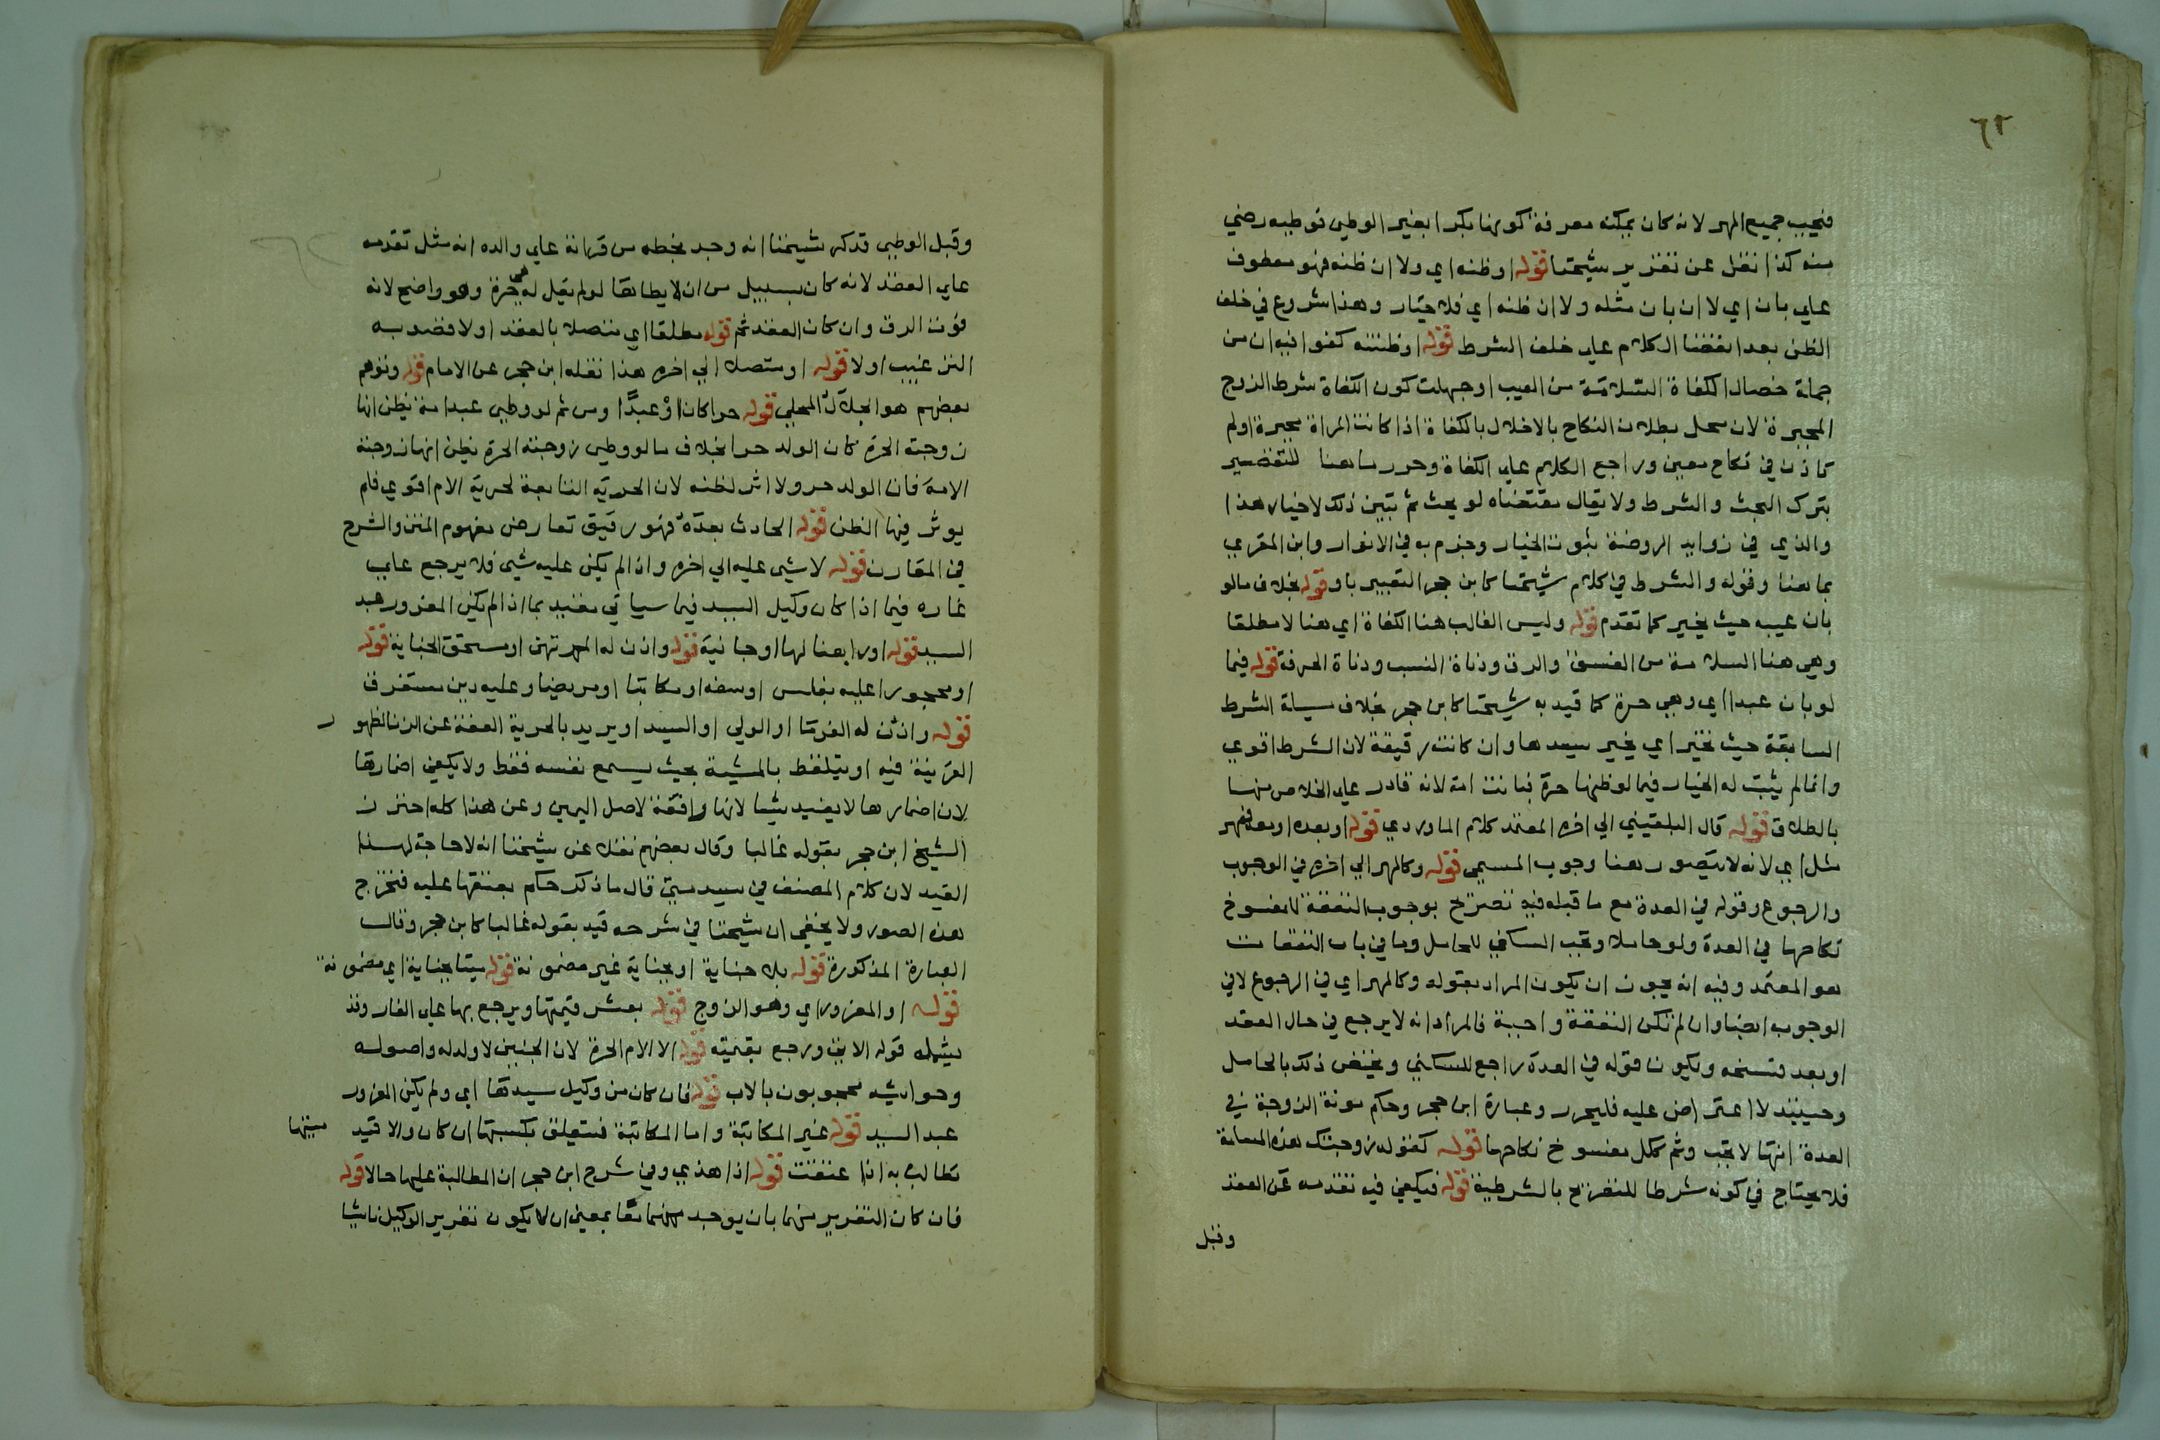 ٦٢
فيجب جميع المهر لانه كان يمكنه معرفة كونها بكرا بغير الوطي توطيه رضي
منه كذا نقل عن تقرير شيخنا قوله او ظنه اي ولا ان ظنه فهو معطوف
علي بان اي لا ان بان مثله ولا ان ظنه اي فلا خيار وهذا شروع في خلف
الظن بعد انقضا الكلام علي خلف الشرط قوله او ظنته كفوا فبان من
جملة خصال الكفاة السلامة من العيب او جهلت كون الكفاة شرط الزوج
المجبرة لان محل بطلان النكاح بالاخلال بالكفاة اذا كانت المراة مجبرة او لم
تاذن في نكاح معين وراجع الكلام علي الكفاة وحرر ما هنا للتقصير
بترك البحث والشرط ولا يقال مقتضاه لو بحث ثم تبين ذلك لاخيار هذا
والذي في زوايد الروضة ثبوت الخيار وجزم به في الانوار وابن المقري
بما هنا وقوله والشرط في كلام شيخنا كابن حجر التعبير باو قوله بخلاف ما لو
بان عيبه حيث يخير كما تقدم قوله وليس الغالب هنا الكفاة اي هنا لا مطلقا
وهي هنا السلامة من الفسق والرق ودناة النسب ودناة الحرفة قوله فيما
لو بان عبدا اي وهي حرة كما قيد به شيخنا كابن حجر بخلاف مسيلة الشرط
السابقة حيث تخير اي يخير سيدها وان كانت رقيقة لان الشرط اقوي
وانما لم يثبت له الخيار فيما لو ظنها حرة فبانت امة لانه قادر علي الخلاص منها
بالطلاق قوله قال البلقيني الي اخره المعتمد كلام الماوردي قوله او بعده او معه فمهر
مثل اي لانه لا يتصور هنا وجوب المسمي قوله وكالمهر الي اخره في الوجوب
والرجوع وقوله في العدة مع ما قبله فيه تصريح بوجوب النفقة لمفسوخ
نكاحها في العدة ولو حاملا وتجب السكني للحامل وما في باب النفقات
هو المعتمد وفيه انه يجوز ان يكون المراد بقوله وكالمهر اي في الرجوع لا في
الوجوب ايضا وان لم تكن النفقة واجبة فالمراد انه لا يرجع في حال العقد
او بعد فسخه ويكون قوله في العدة راجع للسكني ويختص ذلك بالحامل
وحينيذ لا اعتراض عليه فليحرر وعبارة ابن حجر وحكم مونة الزوجة في
العدة انها لا تجب وثم لكل مفسوخ نكاحها قوله كقوله زوجتك هذه المسلمة
فلا يحتاج في كونه شرطا للتصريح بالشرطية قوله فيكفي فيه تقدمه عن العقد
وقبل
وقبل الوطي قد ذكر شيخنا انه وجد بخطه من قراته علي والده انه مثل تقدمه
علي العقد لانه كان بسبيل من ان لا يطاها لو لم يقل له هي حرة وهو واضح لانه
فوت الرق وان كان العقد ثم قوله مطلقا اي متصلا بالعقد او لا قصد به
الترغيب او لا قوله او متصلا الي اخره هذا نقله ابن حجر عن الامام قوله وتوهم
بعضهم هو الجلال المحلي قوله حرا كان او عبدا ومن ثم لو وطي عبد امة يظن انها
زوجته الحرة كان الولد حرا بخلاف ما لو وطي زوجته الحرة يظن انها زوجته
الامة فان الولد حر ولا اثر لظنه لان الحرية التابعة لحرية الام اقوي فلم
يوثر فيها الظن قوله الحادث بعده فهو رقيق تعارض مفهوم المتن والشرح
في المقارن قوله لا شي عليه الي اخره واذا لم يكن عليه شي فلا يرجع علي
غاره فيما اذا كان وكيل السيد فيما سياتي مقيد بما اذا لم يكن المغرور عبد
السيد قوله او راهنا لها او جانية قوله واذن له المرتهن او مستحق الجناية قوله
او محجورا عليه بفلس او سفه او مكاتبا او مريضا وعليه دين مستغرق
قوله واذن له الغرما او الولي او السيد او يريد بالحرية العفة عن الزنا لظهور
القرينة فيه او يتلفظ بالمشية بحيث يسمع نفسه فقط ولا يكفي اضمارها
لان اضمارها لا يفيد شيا لانها رافعة لاصل اليمين وعن هذا كله احترز
الشيخ ابن حجر بقوله غالبا وقال بعضهم نقلا عن شيخنا انه لا حاجة لهذا
القيد لان كلام المصنف في سيد مبين قال ما ذكر حكم بعتقها عليه فتخرج
هذه الصور ولا يخفي ان شيخنا في شرحه قيد بقوله غالبا كابن حجر وقال
العبارة المذكورة قوله بلا جناية او بجناية غير مضمونة قوله ميتا بجناية اي مضمونة
قوله او المغرور اي وهو الزوج قوله بعشر قيمتها ويرجع بها علي الغار وقد
يشمله قوله الاتي ورجع بقيمته قوله الا الام الحرة لان الجنين لا ولد له واصوله
وحواشيه محجوبون بالاب قوله فان كان من وكيل سيدها اي ولم يكن المغرور
عبد السيد قوله غير المكاتبة واما المكاتبة فتتعلق بكسبها ان كان والا فيد منها
تطالب به اذا عتقت قوله اذا هذي وفي شرح ابن حجر ان المطالبة عليها حالا قوله
فان كان التغرير منهما بان يوجد منهما معا بمعني ان لا يكون تغرير الوكيل ناشيا